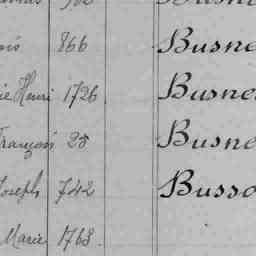 866 Busne
ie Henri 1726 Busne
François 28 Busne
Joseph 742 Busso
Marie 1768